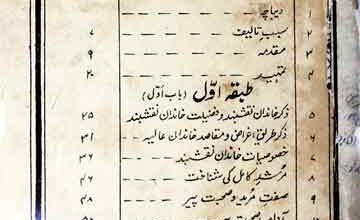 ۱ دیباچہ
۲ سبب تالیف ۷
۳ مقدمہ ۹
۴ تمہید ۲۰
طبقہ اوّل (باب اوّل)
۵ ذکر خاندان نقشبند و فضیلت خاندان نقشبند ۲۵
۶ ذکر طریق اغراض و مقاصد خاندان عالیہ ۳۱
۷ خصوصیات خاندان نقشبند ۳۶
۸ مرشد کامل کی شناخت ۴۶
۹ صفت مرید و صحبت پیر ۴۸